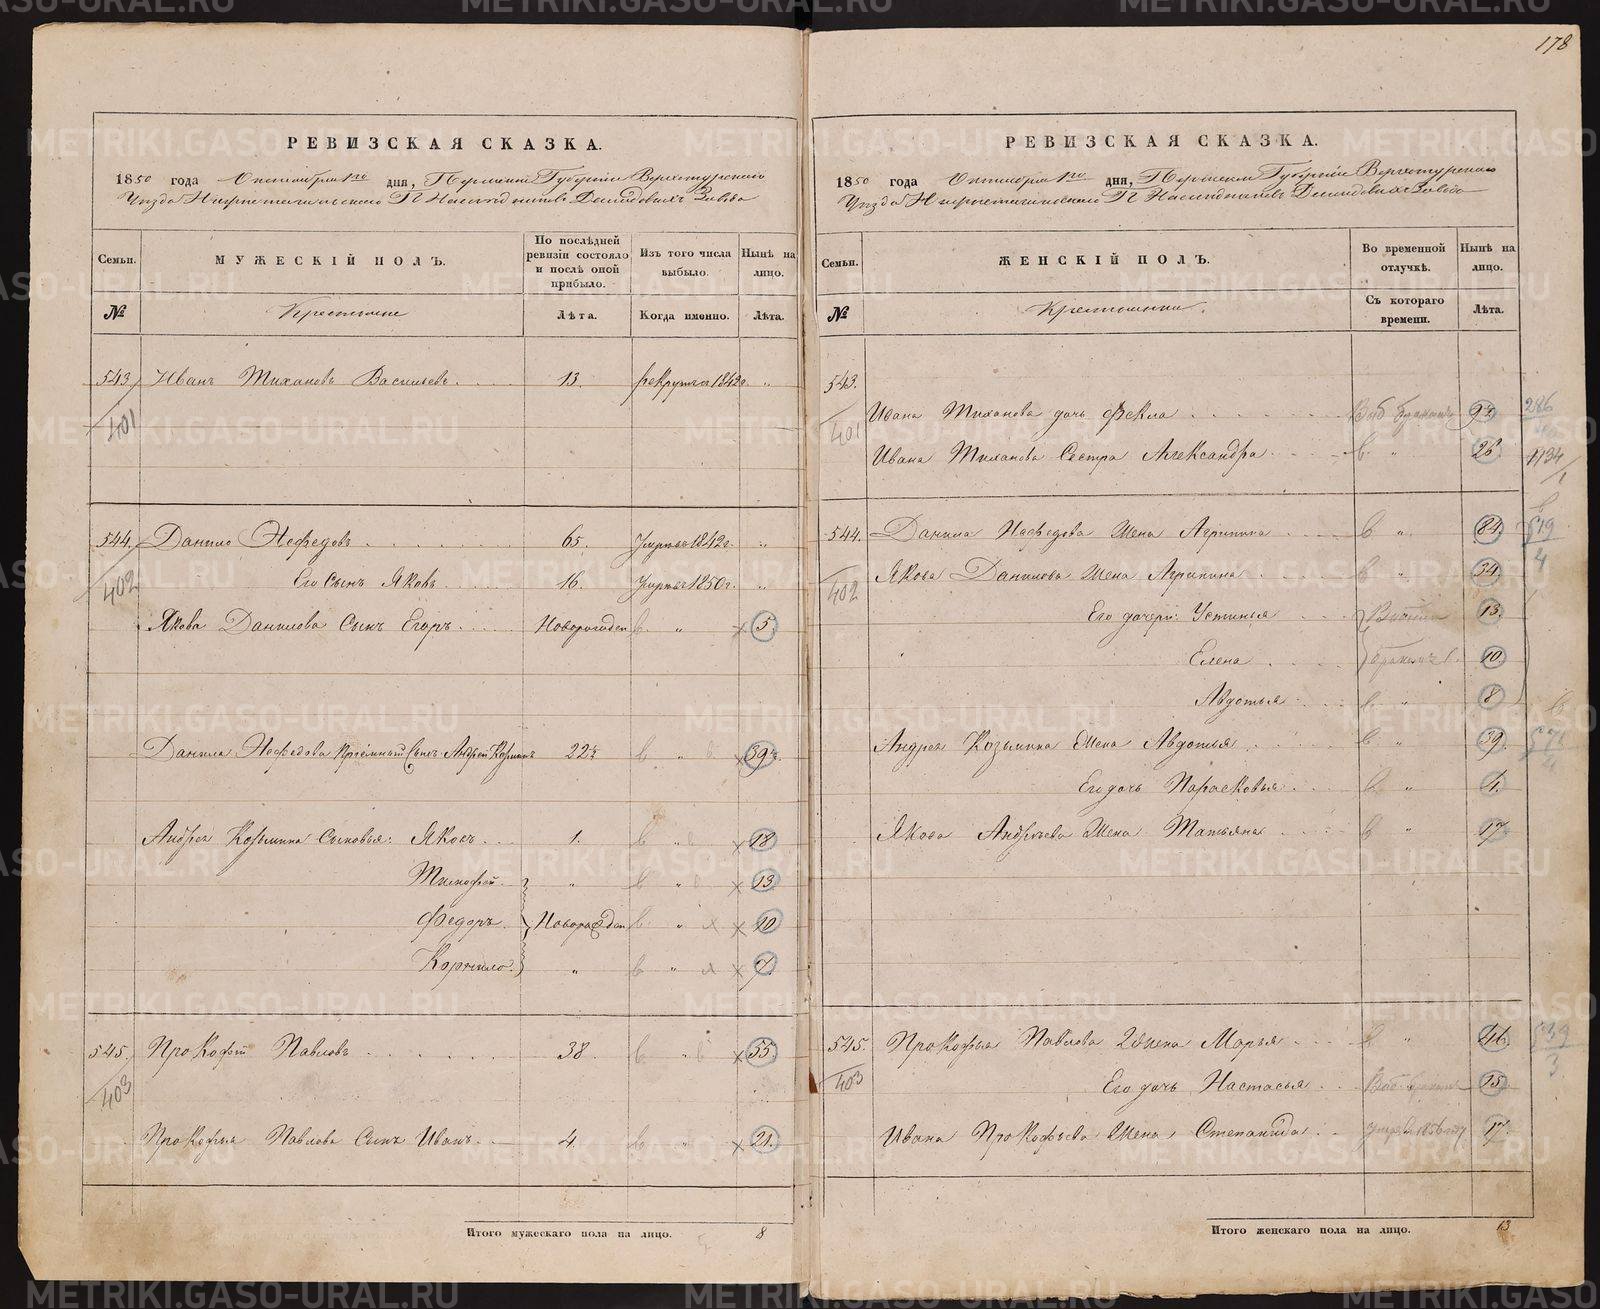 178
РЕВИЗСКАЯ СКАЗКА.
1850 года Октября 1го дня, Пермской Губерніи Верхотурского
Уезда Нижнетагильского Гг Наследниковъ Демидовыхъ Завода
Семьи. МУЖЕСКІЙ ПОЛЪ. По послѣдней ревизіи состояло и послѣ оной прибыло. Изъ того числа выбыло. Нынѣ на лицо.
№ Крестьяне Лѣта. Когда именно. Лѣта.
543. Иванъ Тихановъ Васильевъ 13. рекрутъ 1842г. "
401
544. Данило Нефедовъ 65. Умръ 1842г. "
402 Его Сынъ Яковъ 16. Умръ 1850г. "
Якова Данилова Сынъ Егоръ Новорожден " 5
Данила Нефедова Приемный Сынъ Андрей Козминъ 22½ " 39½
Андрея Козмина Сыновья: Яковъ 1. " 18
Тимофей " " 13
Федоръ Новорожден " 10
Корнило " " 7
545. Прокофей Павловъ 38. " 55
403
Прокофья Павлова Сынъ Иванъ 4 " 21.
Итого мужескаго пола на лицо. 8
РЕВИЗСКАЯ СКАЗКА.
1850 года Октября 1го дня, Пермской Губерніи Верхотурского
Уезда Нижнетагильского Гг Наследниковъ Демидовыхъ Завода
Семьи. ЖЕНСКІЙ ПОЛЪ. Во временной отлучкѣ. Нынѣ на лицо.
№ Крестьянки Съ котораго времени. Лѣта.
543.
401 Ивана Тиханова дочь Фекла 286
Ивана Тиханова Сестра Александра " 26 1734
544. Данила Нефедова Жена Агрипина " 84 4
402 Якова Данилова Жена Агрипина " 34
Его дочери: Устинья 13
Елена 10
Авдотья " 8
Андрея Козьмина Жена Авдотья " 39
Его дочь Парасковья " 1.
Якова Андреева Жена Татьяна " 17
545. Прокофья Павлова 2я жена Марья " 46 3
403 Его дочь Настасья 15
Ивана Прокофьева Жена Степанида 1856 17
Итого женскаго пола на лицо. 13
METRIKI.GASO-URAL.RU